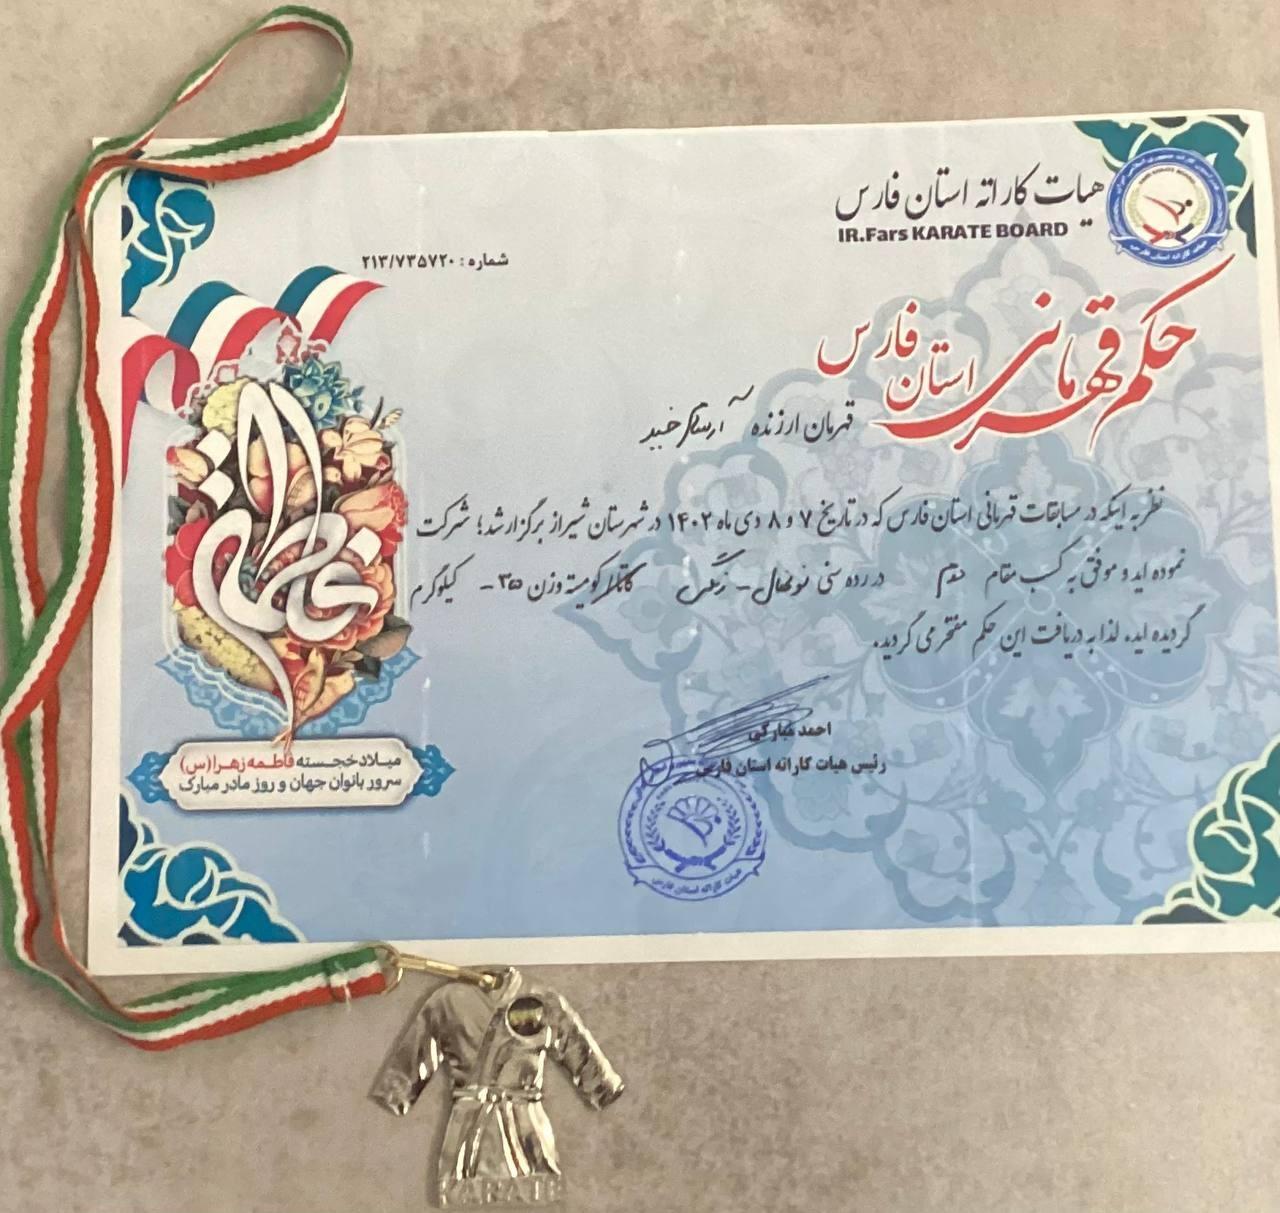 هیات کاراته استان فارس
IR.Fars KARATE BOARD
شماره : ۲۱۳/۷۳۵۷۲۰
حکم قهرمانی استان فارس
قهرمان ارزنده
نظر به اینکه در مسابقات قهرمانی استان فارس که در تاریخ ۷ و ۸ دی ماه ۱۴۰۲ در شهرستان شیراز برگزار شد؛ شرکت
نموده اید و موفق به کسب مقام دوم در رده سنی نونهال - رنگی کاتا/کومیته وزن ۳۵- کیلوگرم
گردیده اید. لذا به دریافت این حکم مفتخر می گردید.
احمد مبارکی
رئیس هیات کاراته استان فارس
هیات کاراته استان فارس
فاطمة
میلاد خجسته فاطمه زهرا(س)
سرور بانوان جهان و روز مادر مبارک
KARATE